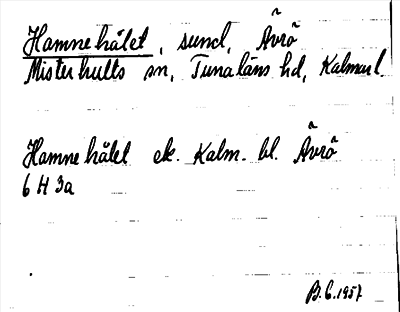 Hamnehålet, sund, Ävrö
Misterhults sn, Tunaläns hd, Kalmar l.
Hamnehålet ek. Kalm. bl. Ävrö
6 H 3a
B.G. 1957